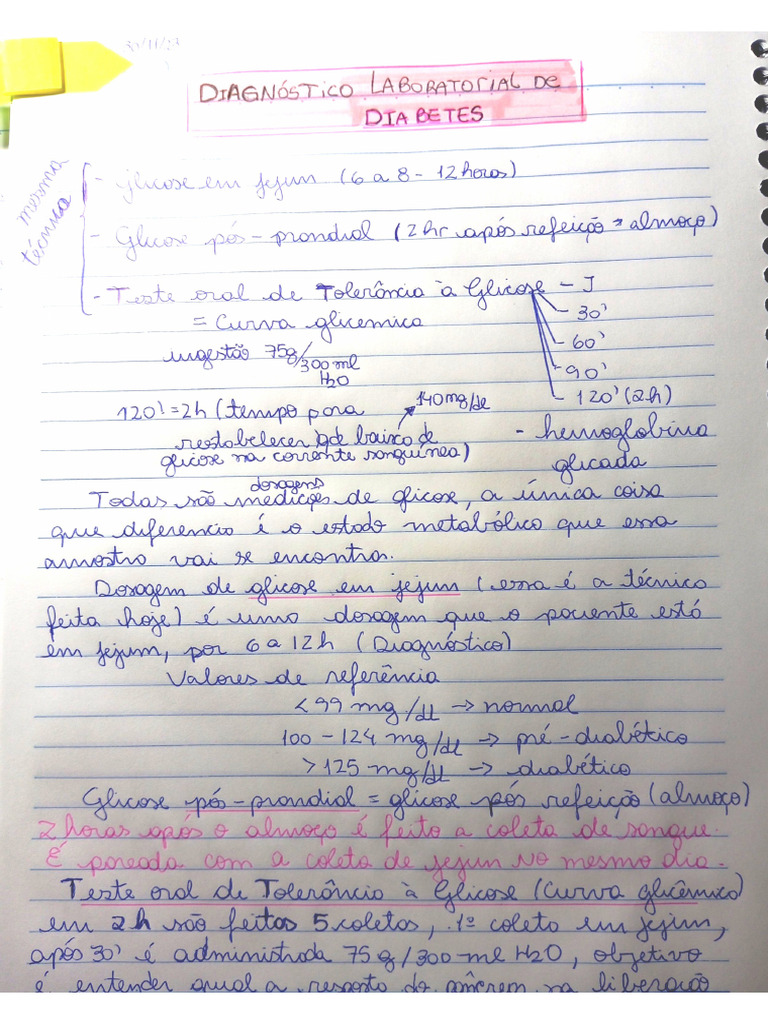 30/11/23
DIAGNÓSTICO LABORATORIAL DE
DIABETES
mesma
técnica
- glicose em jejum (6 a 8 - 12 horas)
- Glicose pós-prandial (2hr após refeição = almoço)
- Teste oral de Tolerância à Glicose - J
= Curva glicemica
- 30'
ingestão 75g/300ml H2O
- 60'
- 90'
- 120' (2h)
120' = 2h (tempo para
140mg/dl
restabelecer qde baixo de
glicose na corrente sanguínea)
- hemoglobina
glicada
dosagens
Todas são medições de glicose, a única coisa
que diferencia é o estado metabólico que essa
amostra vai se encontra.
Dosagem de glicose em jejum (essa é a técnica
feita hoje) é uma dosagem que o paciente está
em jejum, por 6 a 12h (Diagnóstico)
Valores de referência
< 99 mg/dl → normal
100 - 124 mg/dl → pré-diabético
> 125 mg/dl → diabético
Glicose pós-prandial = glicose pós refeição (almoço)
2 horas após o almoço é feito a coleta de sangue.
É pareada com a coleta de jejum no mesmo dia.
Teste oral de Tolerância à Glicose (Curva glicêmica)
em 2h são feitas 5 coletas, 1ª coleta em jejum,
após 30' é administrada 75g/300-ml H2O, objetivo
é entender qual a resposta do pâncreas na liberação